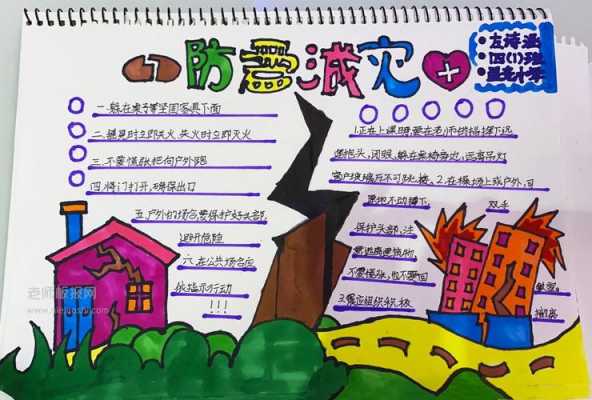 防震减灾
友诗涵
四(1)班
一.躲在桌子等坚固家具下面
二.摇晃时立即关火,失火时立即灭火
三.不要慌张地向户外跑
四.将门打开,确保出口
五.户外的场合要保护好头部,
避开危险
六.在公共场合应
依指示行动
!!!
1.正在上课时要在老师指挥下迅
速抱头、闭眼、躲在桌椅旁边,远离吊灯
窗户玻璃万不可跳楼。2.在操场上或户外,可
原地不动蹲下,
双手
保护头部,注
意避
不要慌张,也不要回
教室。
3.震后组织积极
撤离
老师板报网